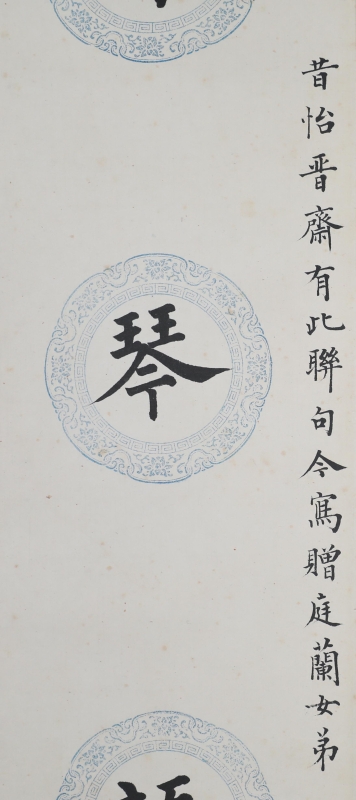 昔怡晋齋有此聯句今寫贈庭蘭女弟
琴